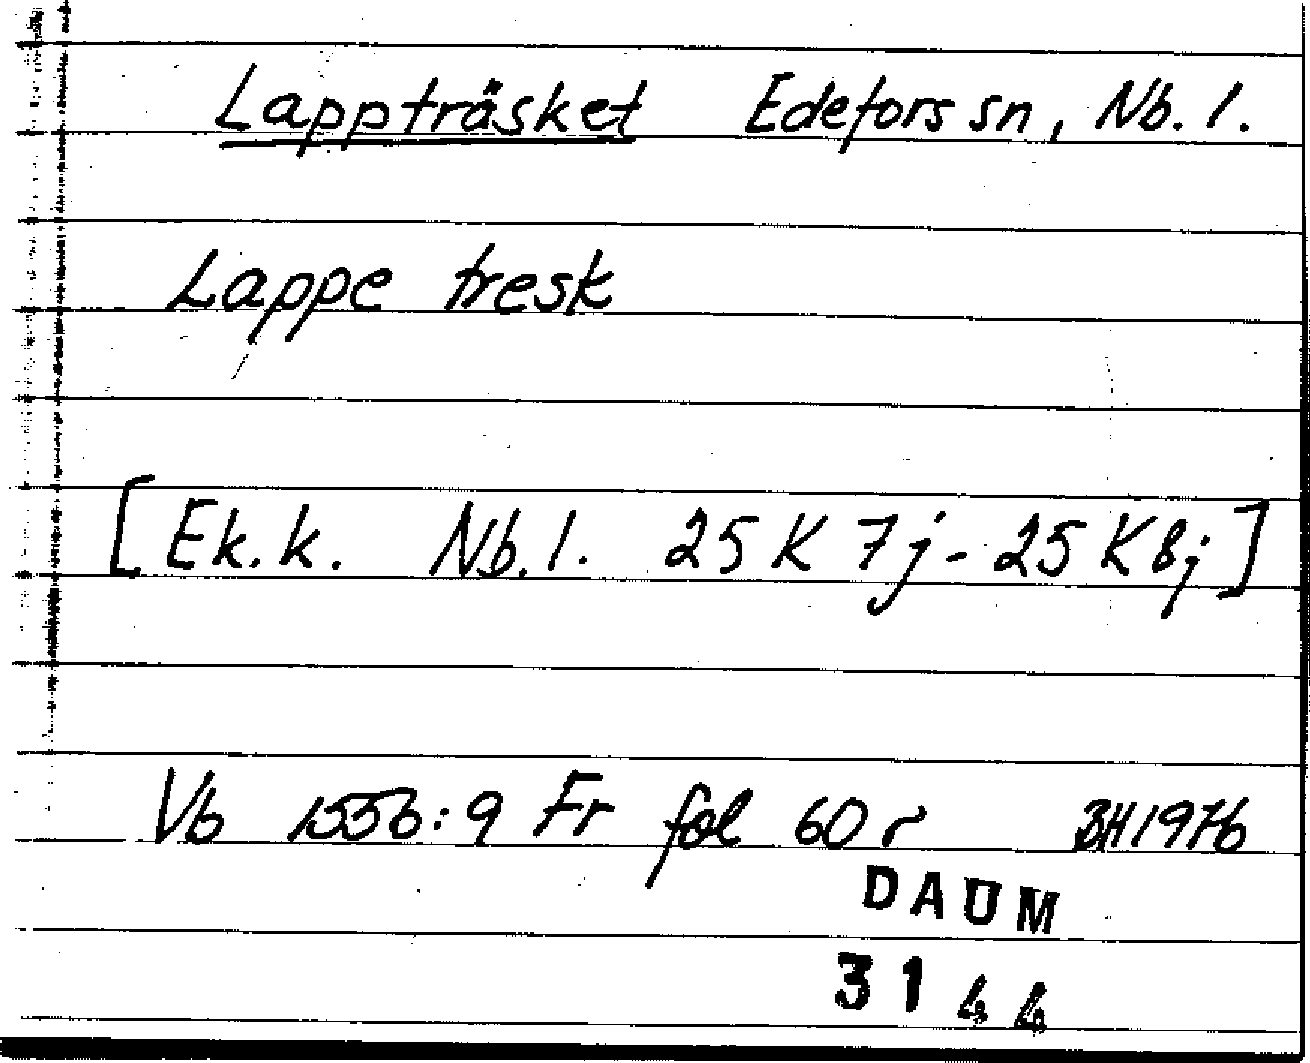 Lappträsket Edefors sn, Nb. l.
Lappe tresk
[Ek. k. Nb. l. 25 K 7j - 25 K 8j]
Vb 1556:9 Fr fol 60 r BH 1976
DAUM
3144